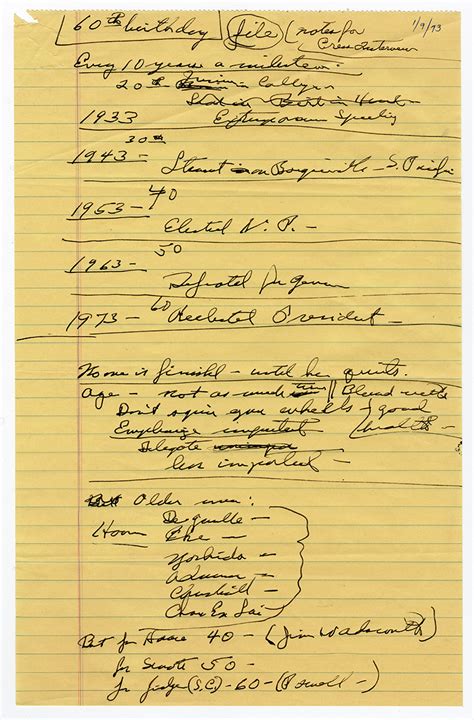 60th birthday file (notes for 1/9/73
Crew Interview
Every 10 years a milestone:
20th Junior in College
1933 Extemporaneous Speaking
30th
1943 - Stewart on Bougainville - S. Pacific
40
1953 - Elected V. P. -
50
1963 - Defeated for Governor
60
1973 - Reelected President -
No one is finished - until he quits.
Age - not as much Blend
Don't spin your wheels & good
Emphasize important health -
Delegate
less important -
But Older men:
De Gaulle -
Ike -
Yoshida -
Adenauer -
Churchill -
Chou En Lai -
But for House 40 - (Jim Wadsworth)
for Senate 50 -
for judge (S.C.) - 60 - (Powell -)